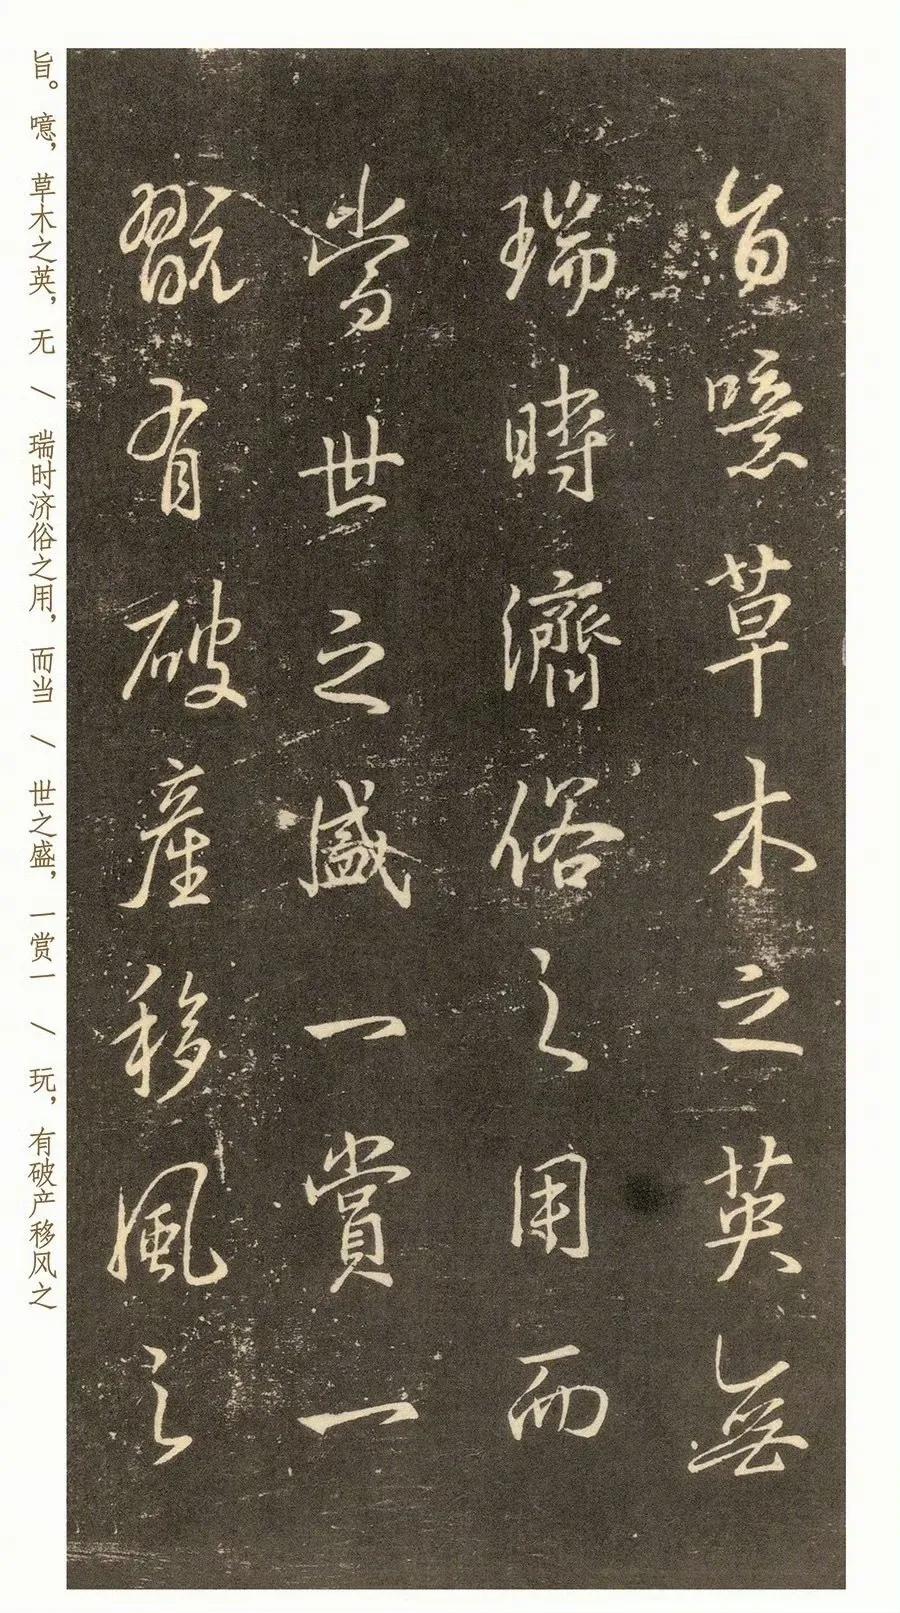 旨噫草木之英無
瑞時濟俗之用而
當世之盛一賞一
翫有破産移風之
旨。噫，草木之英，无 / 瑞时济俗之用，而当 / 世之盛，一赏一 / 玩，有破产移风之